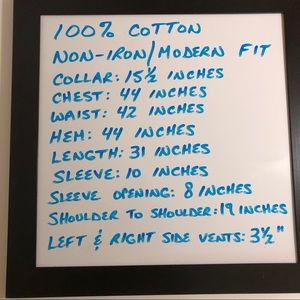 100% COTTON
NON-IRON/MODERN FIT
COLLAR: 15½ INCHES
CHEST: 44 INCHES
WAIST: 42 INCHES
HEM: 44 INCHES
LENGTH: 31 INCHES
SLEEVE: 10 INCHES
SLEEVE OPENING: 8 INCHES
SHOULDER TO SHOULDER: 19 INCHES
LEFT & RIGHT SIDE VENTS: 3½"